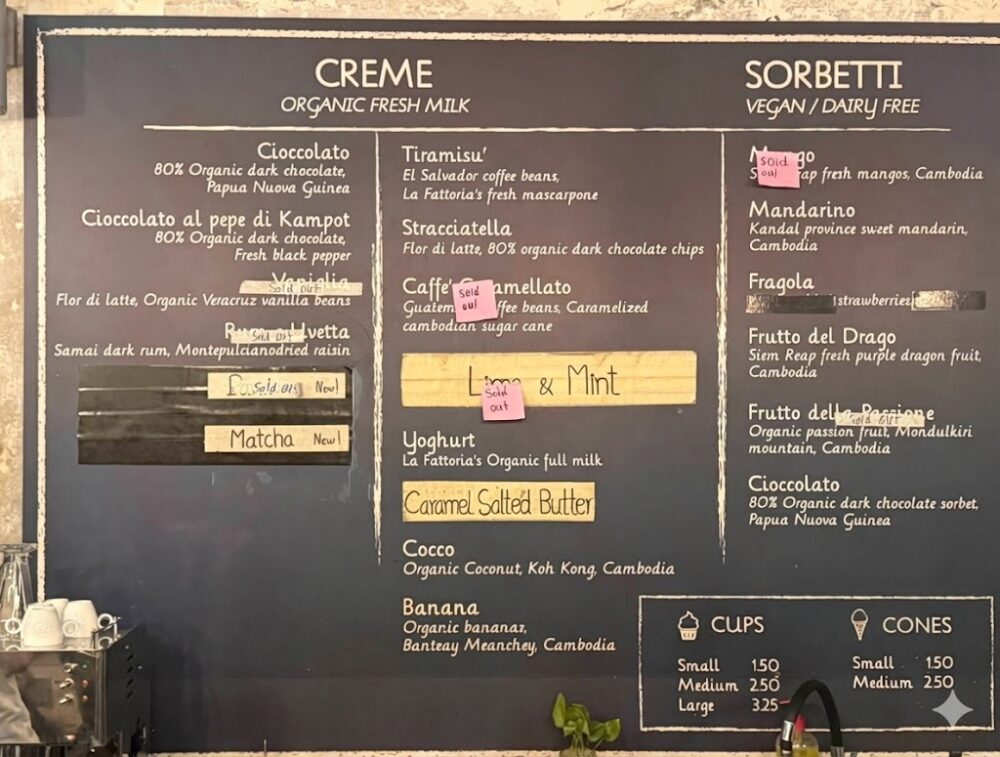 CREME
ORGANIC FRESH MILK
Cioccolato
80% Organic dark chocolate,
Papua Nuova Guinea
Cioccolato al pepe di Kampot
80% Organic dark chocolate,
Fresh black pepper
Vaniglia
Sold out
Flor di latte, Organic Veracruz vanilla beans
Sold out
Samai dark rum, Montepulcianodried raisin
Sold out New!
Matcha New!
Tiramisu'
El Salvador coffee beans,
La Fattoria's fresh mascarpone
Stracciatella
Flor di latte, 80% organic dark chocolate chips
Caffe'
Sold
out
beans, Caramelized
cambodian sugar cane
& Mint
Sold
out
Yoghurt
La Fattoria's Organic full milk
Caramel Salted Butter
Cocco
Organic Coconut, Koh Kong, Cambodia
Banana
Organic bananaz,
Banteay Meanchey, Cambodia
SORBETTI
VEGAN / DAIRY FREE
Sold
out
fresh mangos, Cambodia
Mandarino
Kandal province sweet mandarin,
Cambodia
Fragola
strawberries
Frutto del Drago
Siem Reap fresh purple dragon fruit,
Cambodia
Frutto della Passione
Sold out
Organic passion fruit, Mondulkiri
mountain, Cambodia
Cioccolato
80% Organic dark chocolate sorbet,
Papua Nuova Guinea
CUPS
Small 1.50
Medium 2.50
Large 3.25
CONES
Small 1.50
Medium 2.50